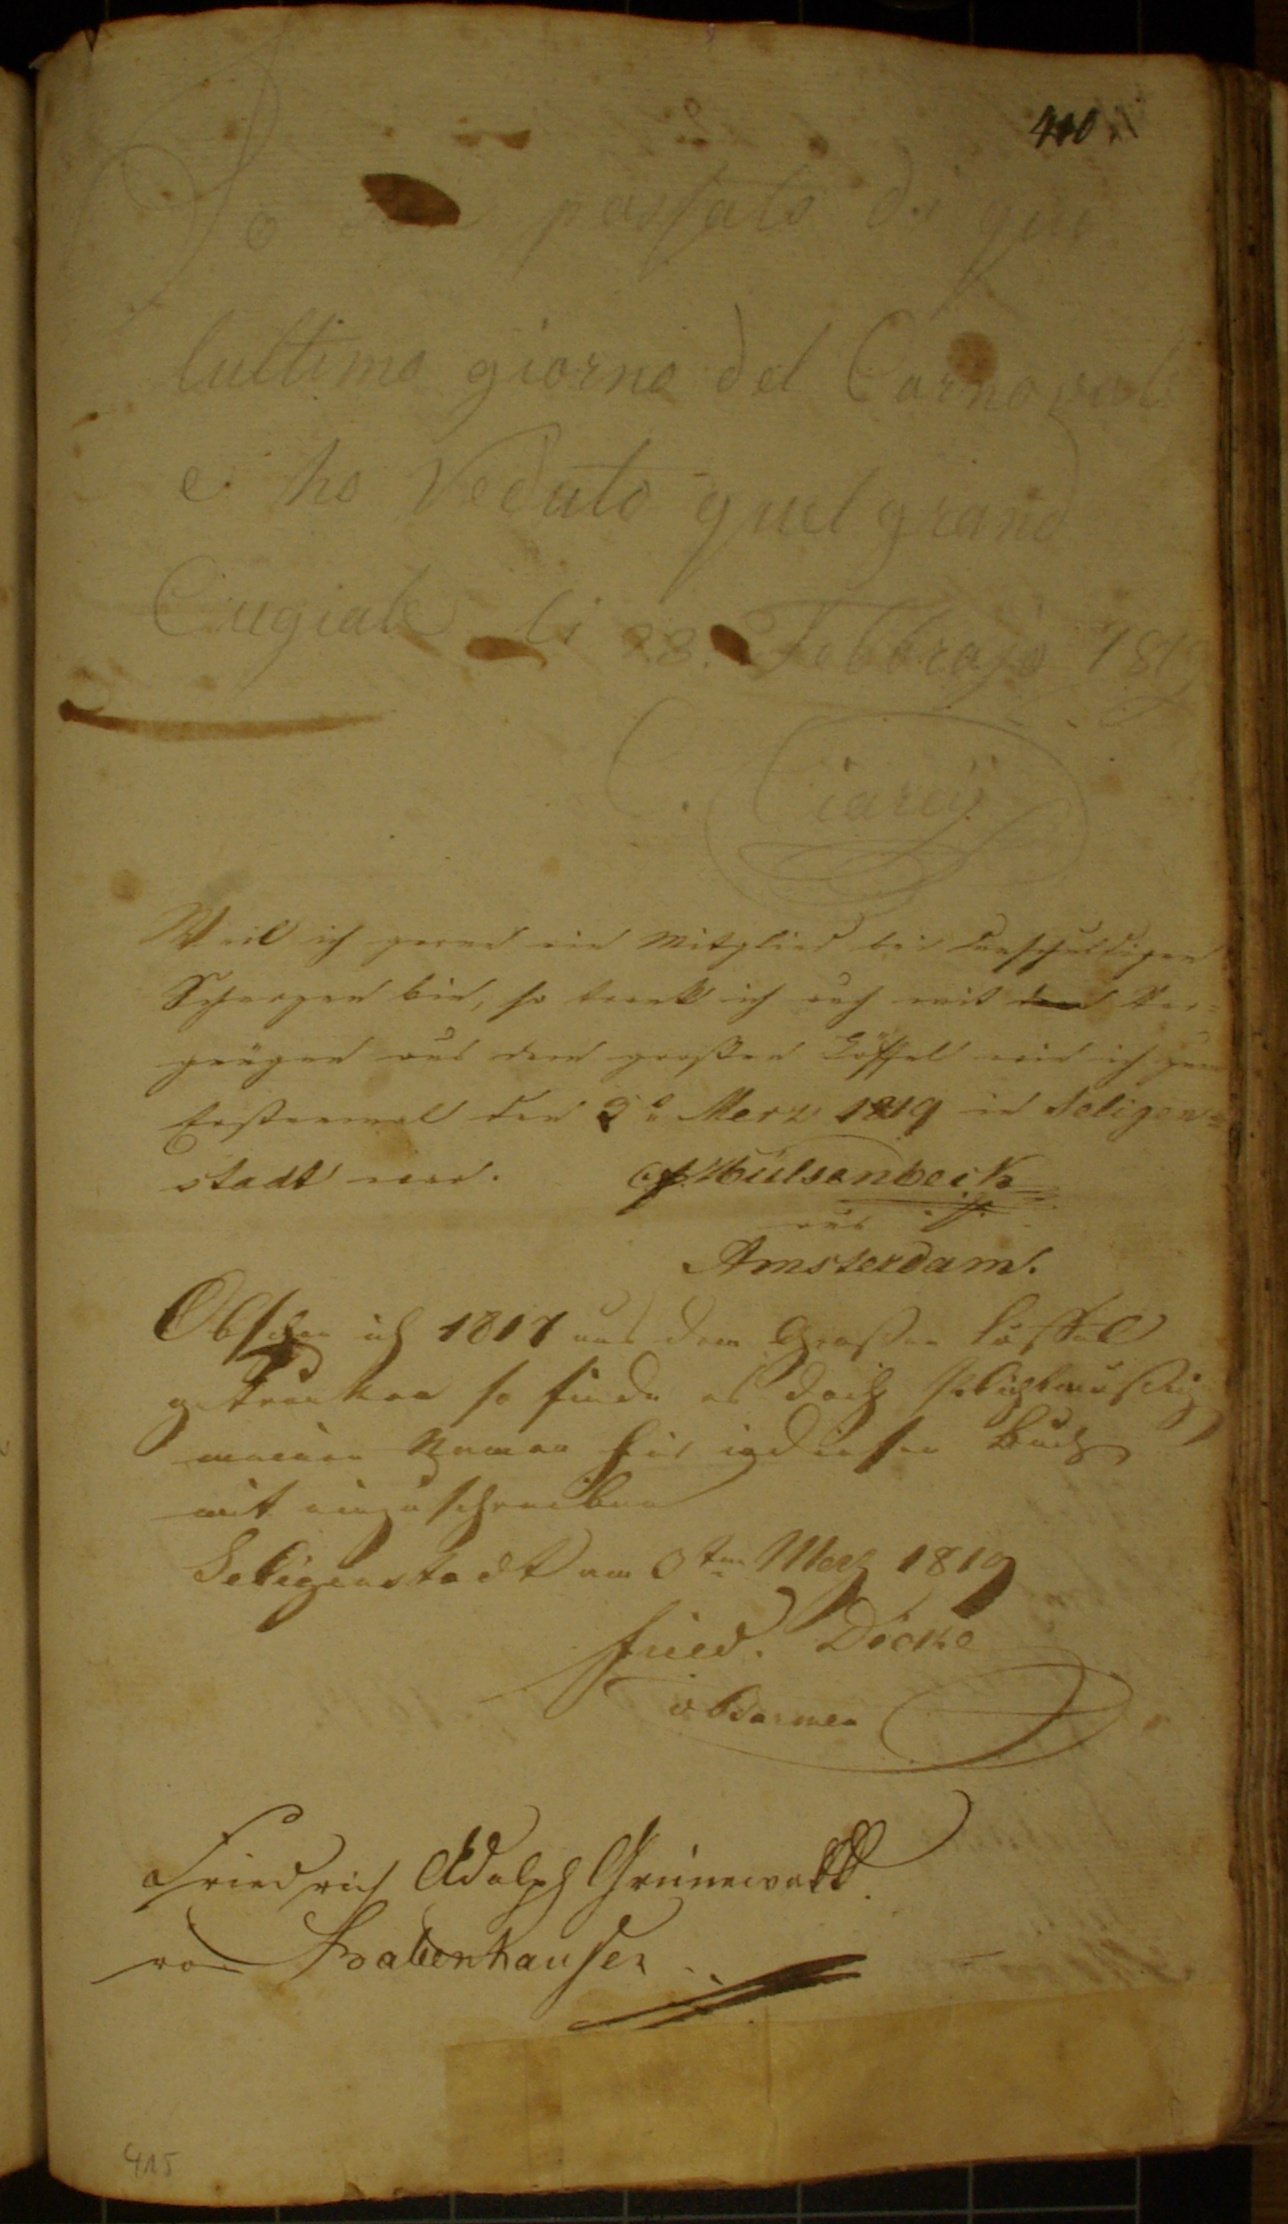 410
Io passato di qui
lultimo giorno del Carnovale
e ho Veduto quel grand
Cugiale li 28. Febbrajo 1819
C. Ciarey
Weil ich gerne ein Mitglied bei unschuldigen
Scherzen bin, so trank ich auch mit Ver-
gnügen aus dem großen Löffel wie ich zum
Erstenmal den Merz 1819 in Seligen-
stadt war. Hülsenbeck
aus
Amsterdam.
Obschon ich 1817 aus dem Grossen Löffel
getrunken so finde es doch pflichtmäßig
meinen Namen hir in diesen Buch
mit einzuschreiben
Seligenstadt am Merz 1819
Fried. Dicke
v Barmen
Friedrich Adolph Grünewald.
von Babenhausen
415